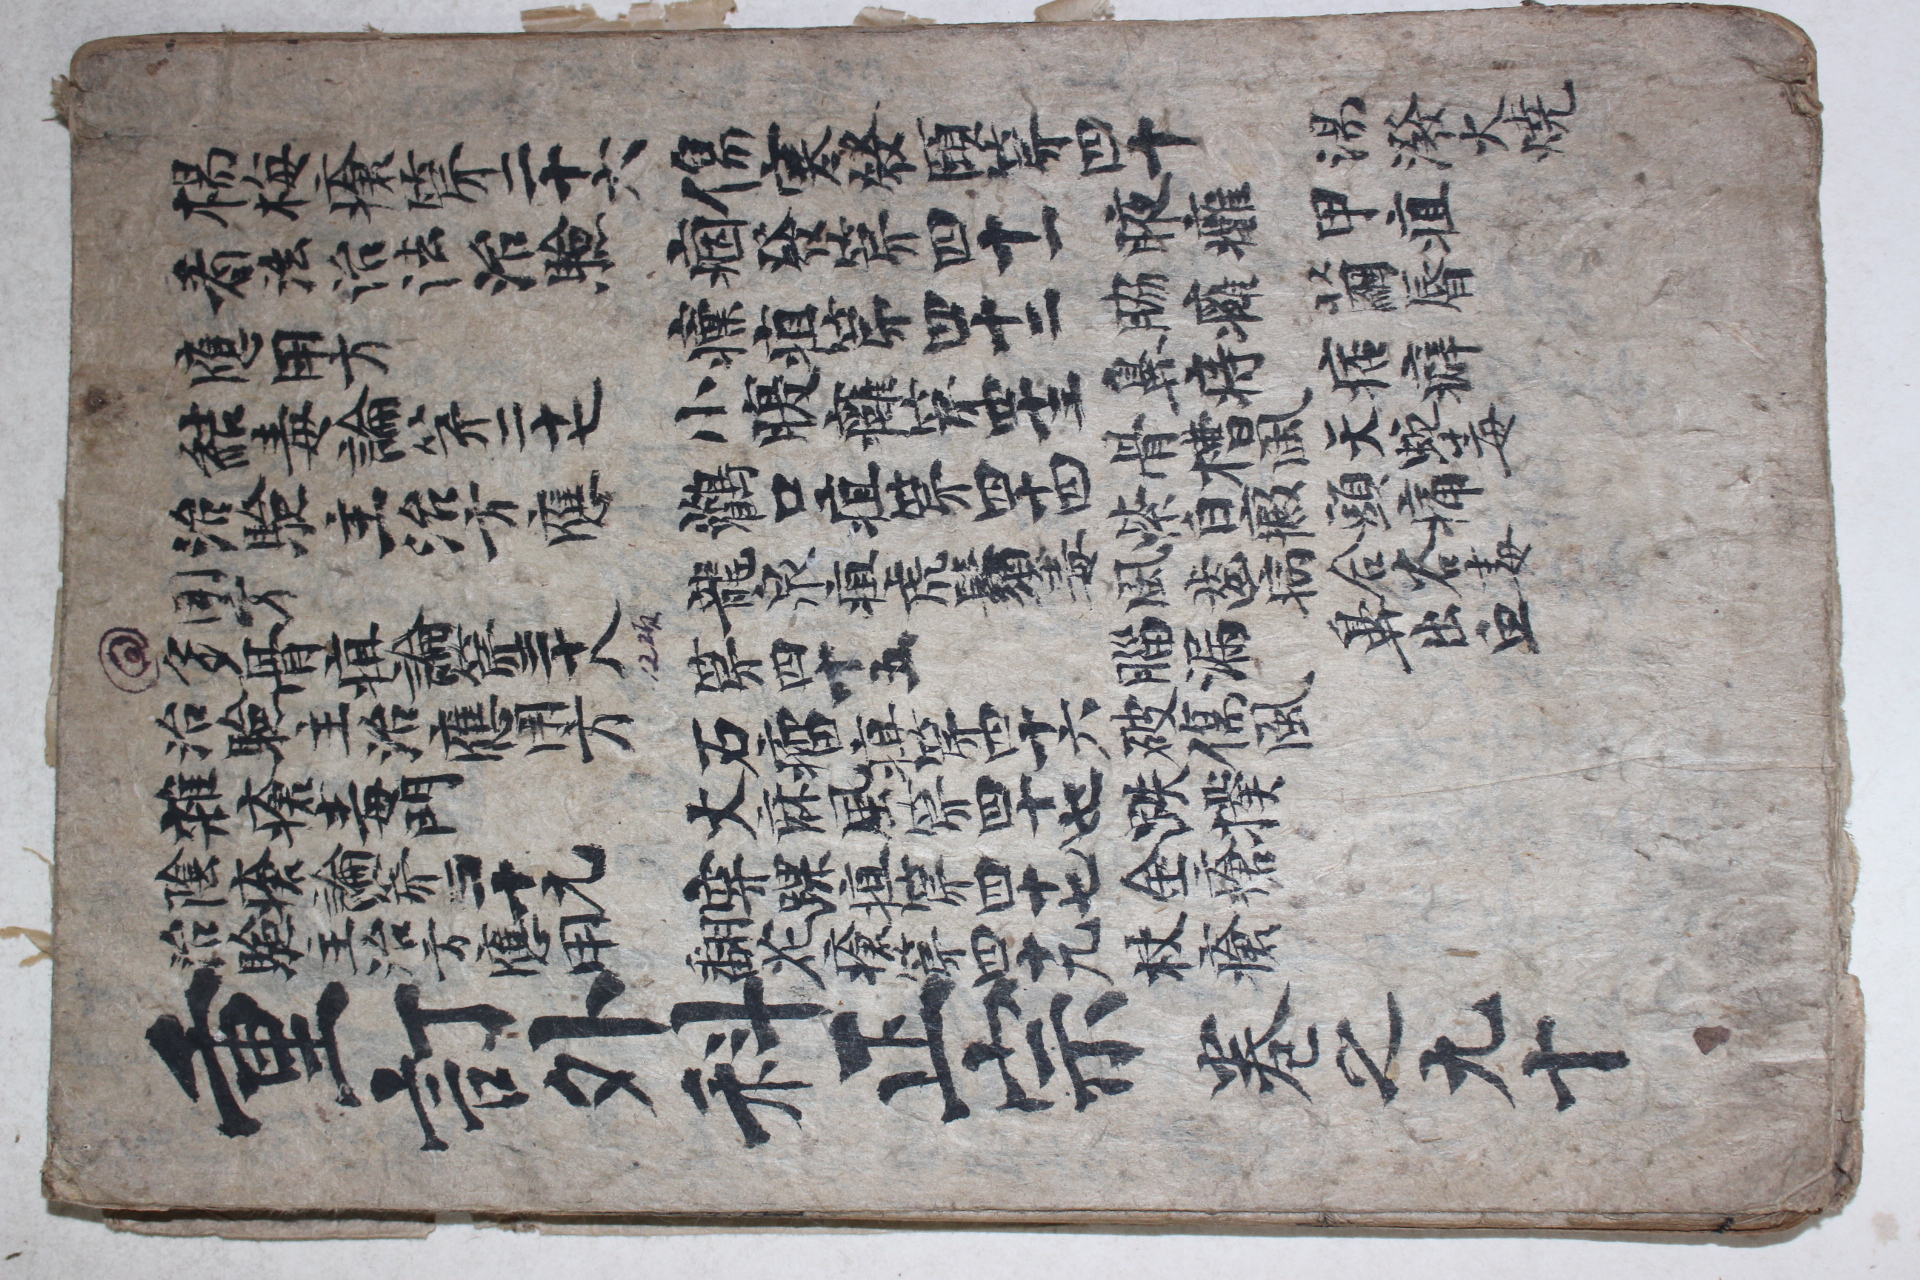 楊梅瘡第二十六
看法治法治驗
應用方
結毒論第二十七
治驗主治方應
用方
多骨疽論第二十八
治驗主治應用方
雜瘡毒門
陰瘡論第二十九
治驗主治方應用
傷寒發頤第四十
痼發第四十一
瘭疽第四十二
小腹癰第四十三
鸛口疽第四十四
龍泉疽虎鬚毒
第四十五
石癅疽第四十六
大麻風第四十七
穿踝疽第四十七
翻花瘡第四十九
腋癰
脇癰
鼻痔
骨槽風
紫白癜
風齒病
腦漏
破傷風
跌撲
金瘡
杖瘡
湯潑火燒
甲疽
繭唇
痞癖
天蛇毒
頭痛
合谷毒
鼻出血
重訂外科正宗 卷之九十